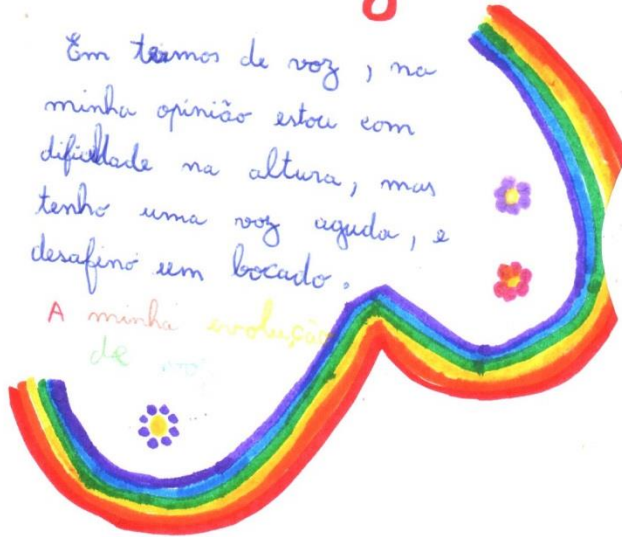 Em termos de voz, na
minha opinião estou com
dificuldade na altura, mas
tenho uma voz aguda, e
desafino um bocado.
A minha evolução
de voz